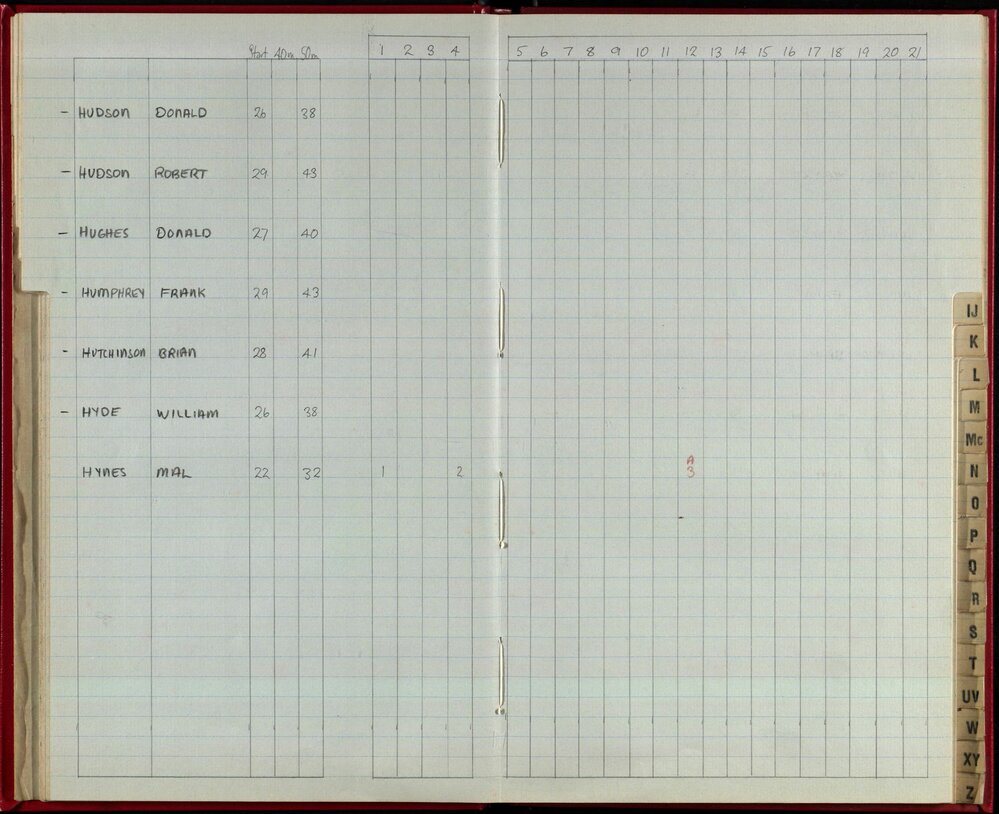 Start 40m 50m 1 2 3 4 5 6 7 8 9 10 11 12 13 14 15 16 17 18 19 20 21
- HUDSON DONALD 26 38
- HUDSON ROBERT 29 43
- HUGHES DONALD 27 40
- HUMPHREY FRANK 29 43
- HUTCHINSON BRIAN 28 41
- HYDE WILLIAM 26 38
A
HYNES MAL 22 32 1 2 3
IJ
K
L
M
Mc
N
O
P
Q
R
S
T
UV
W
XY
Z